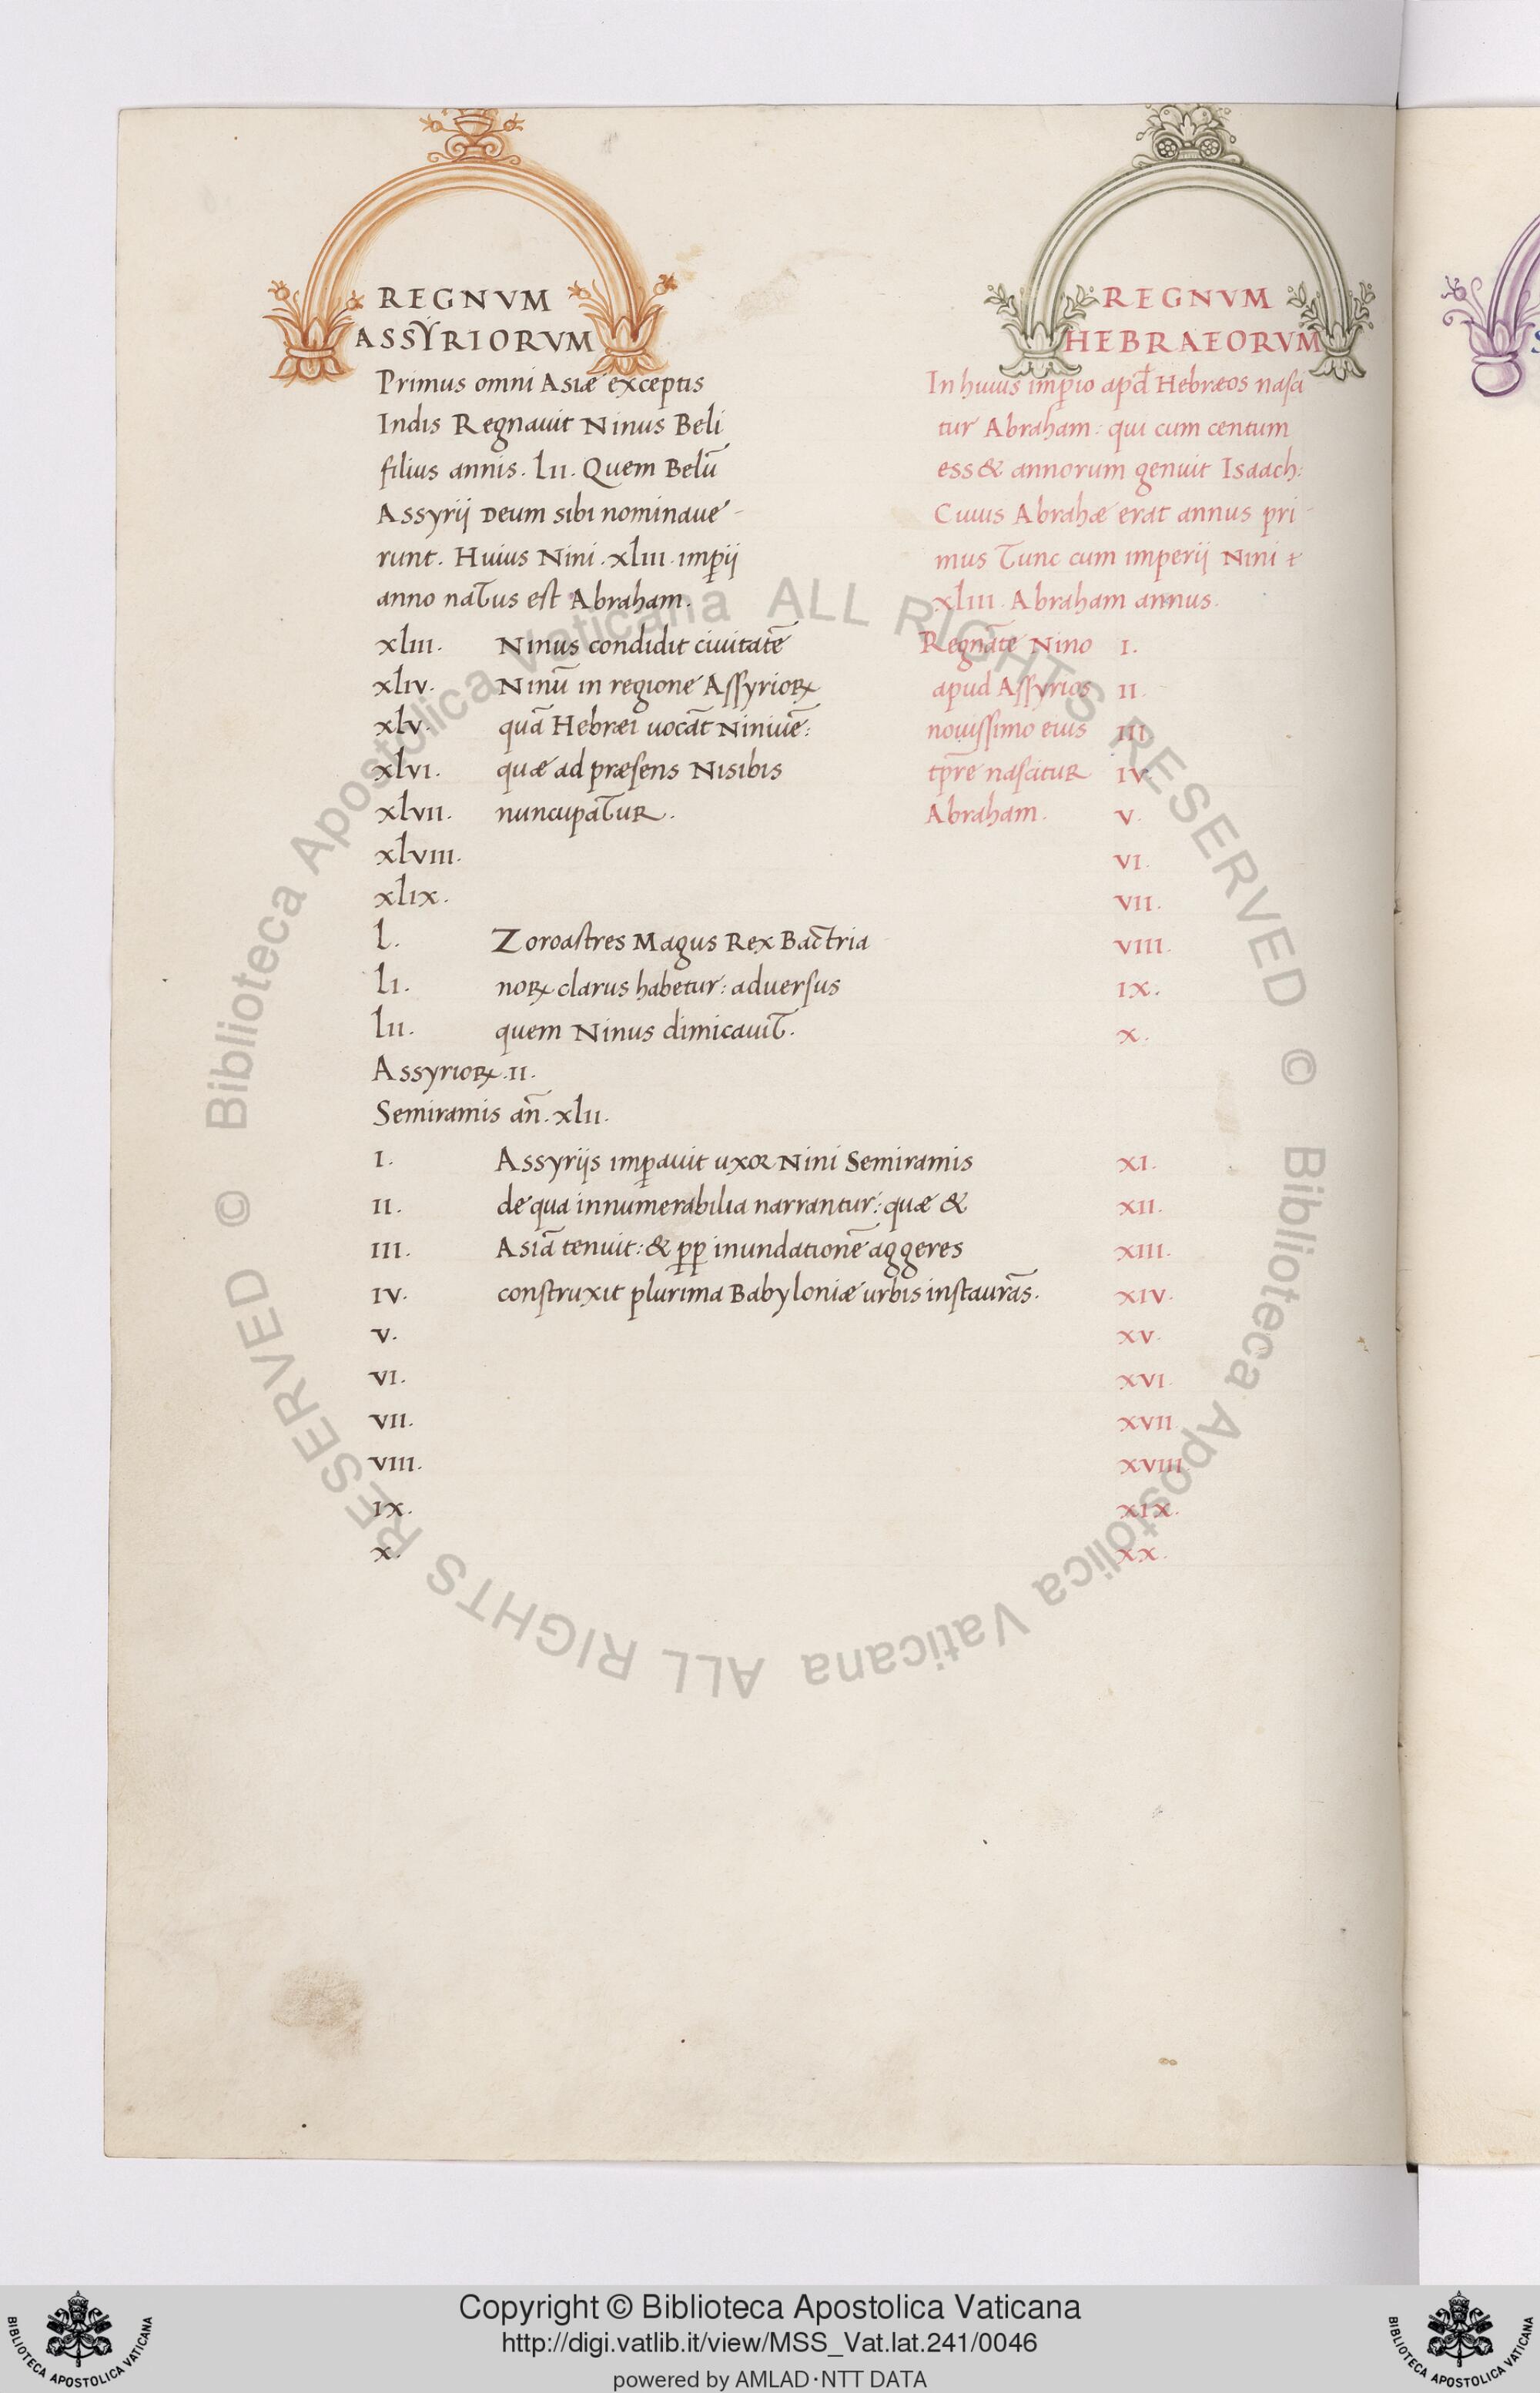 REGNVM
ASSYRIORVM
Primus omni Asiæ exceptis
Indis Regnauit Ninus Beli
filius annis. lII. Quem Belū
Assyrij Deum sibi nominaue-
runt. Huius Nini. xlIII. imp̄ij
anno natus est Abraham.
REGNVM
HEBRAEORVM
In huius imp̄io apđ Hebræos nasci
tur Abraham: qui cum centum
ess& annorum genuit Isaach:
Cuius Abrahæ erat annus pri-
mus Tunc cum imperij Nini
xlIII. Abraham annus.
xlIII. Ninus condidit ciuitatē Regnāte Nino I.
xlIV. Ninū in regione Assyrioꝝ apud Assyrios II.
xlV. quā Hebræi uocāt Niniuē: nouissimo eius III
xlVI. quæ ad præsens Nisibis tp̄re nascitur IV.
xlVII. nuncupatur. Abraham. V.
xlVIII. VI.
xlIX. VII.
l. Zoroastres Magus Rex Bactria VIII.
lI. noꝝ clarus habetur: aduersus IX.
lII. quem Ninus dimicauit. X.
Assyrioꝝ. II.
Semiramis añ. xlII.
I. Assyrijs imp̄auit uxor Nini Semiramis XI.
II. de qua innumerabilia narrantur: quæ & XII.
III. Asiā tenuit: & ꝓꝑ inundationē aggeres XIII.
IV. construxit plurima Babyloniæ urbis instaurās. XIV.
V. XV.
VI. XVI.
VII. XVII
VIII. XVIII
IX. XIX.
X. XX.
© Biblioteca Apostolica Vaticana ALL RIGHTS RESERVED
© Biblioteca Apostolica Vaticana ALL RIGHTS RESERVED
Copyright © Biblioteca Apostolica Vaticana
http://digi.vatlib.it/view/MSS_Vat.lat.241/0046
powered by AMLAD·NTT DATA
BIBLIOTECA APOSTOLICA VATICANA
BIBLIOTECA APOSTOLICA VATICANA